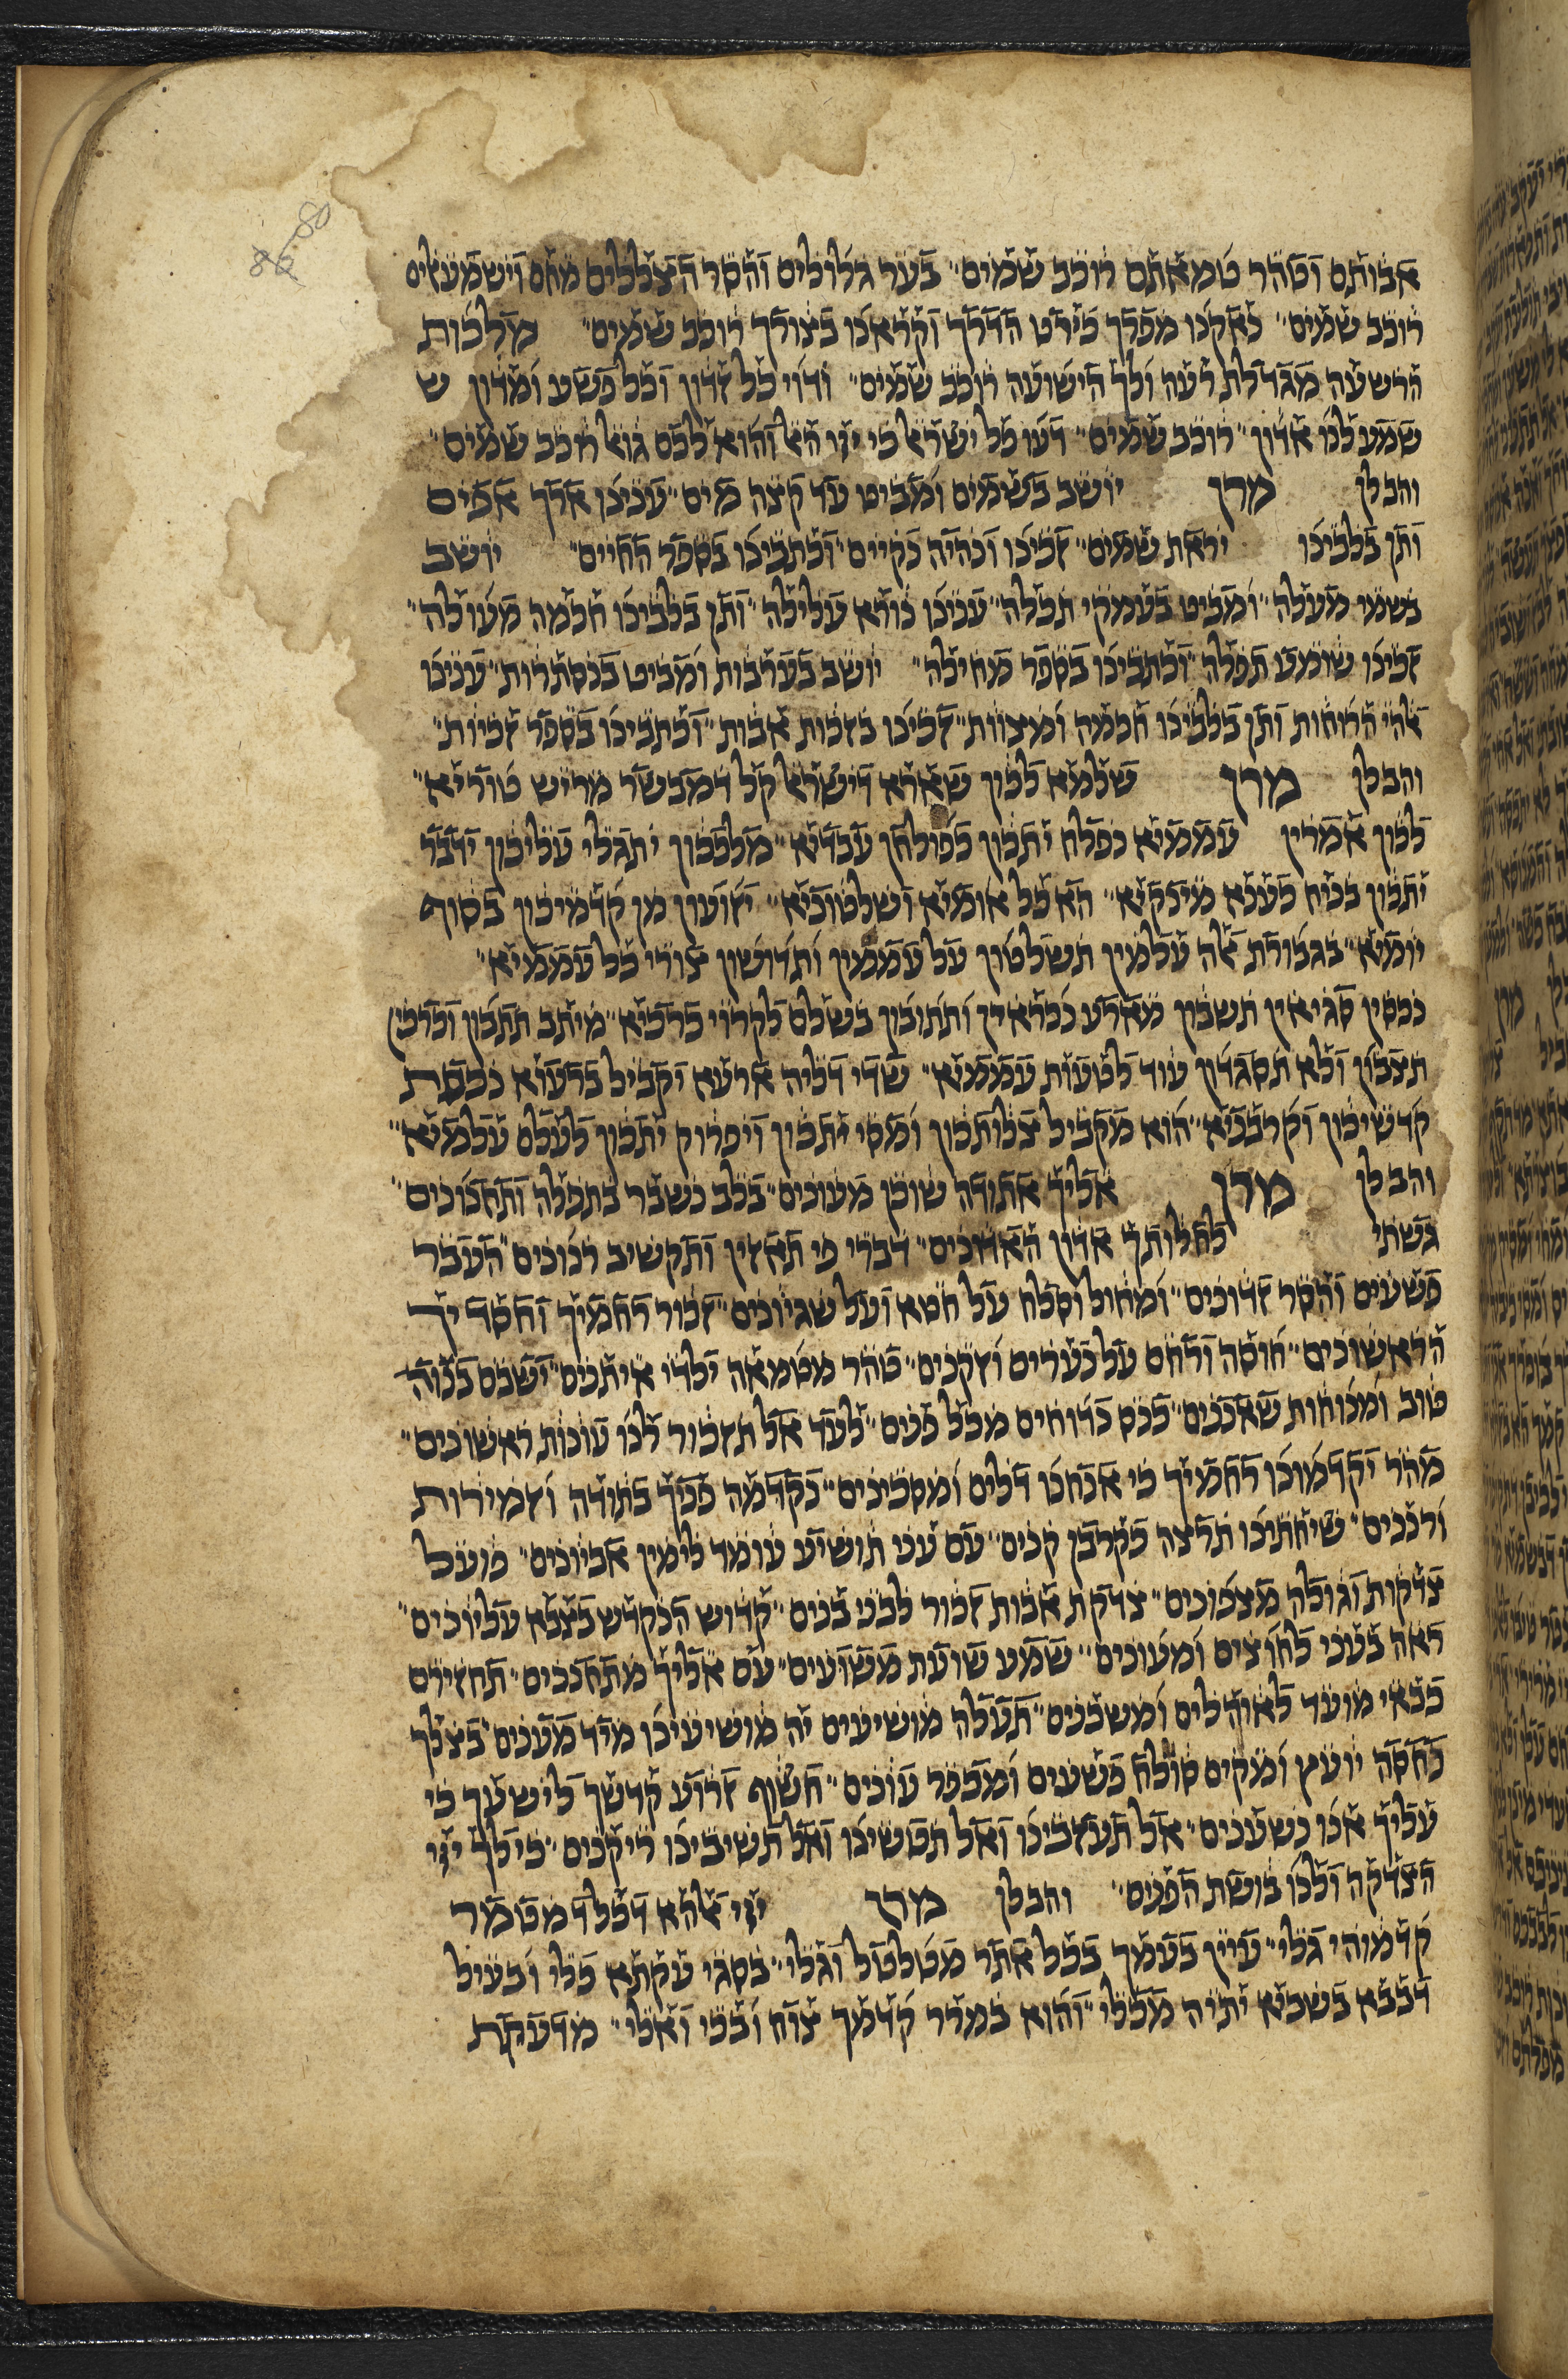 80
86
אבותם וטהר טמאתם רוכב שמים בער גלולים והסר הצללים מהם וישמעאלים
רוכב שמים נאקנו מפרך בירט הדרך וקראנו בצורך רוכב שמים מלכות
הרשעה מגדלת רעה ולך הישועה רוכב שמים ודוי כל זדון וכל פשע ומדון ש
שמע לנו אדון רוכב שמים דעו כל ישראל כי ייי האל והוא לכם גואל רוכב שמים
והבלן מרן יושב בשמים ומביט עד קצה מים עננינו ארך אפים
ותן בלבינו יראת שמים זכינו ונהיה נקיים וכתבינו בספר החיים יושב
בשמי מעלה ומביט בעמקי תהלה עננו נורא עלילה ותן בלבינו חכמה מעולה
זכינו שומע תפלה וכתבינו בספר מחילה יושב בערבות ומביט בנסתרות עננו
אלהי הרוחות ותן בלבינו חכמה ומצוות זכינו בזכות אבות וכתבינו בספר זכיות
והבלן מרן שלמא לכון שארא דישראל קל דמבשר מריש טוריא
לכון אמרין עממיא נפלח יתכון כפולחן עבדיא מלככון יתגלי עליכון ידבר
יתכון בניח כענא מינקיא הא כל אומיא ושלטוניא יזועון מן קדמיכון בסוף
יומיא בגבורת אלה עלמין תשלטון על עממין ותדושון צורי כל עממיא
נכסין סגיאין תשבון מארע נכראין ותתובון בשלם לקרוי כרכיא מיתב תתבון וכרמין
תצבון ולא תסגדון עוד לטעות עממיא שדי דליה ארעא יקביל ברעוא נכסת
קדשיכון וקרבניא הוא מקביל צלותכון ומסי יתכון ויפרוק יתכון לעלם עלמיא
והבלן מרן אליך אתודה שוכן מעונים בלב נשבר בתפלה ותחנונים
גשתי לחלותך אדון האדונים דברי פי תאזין ותקשיב רנונים העבר
פשעים והסר זדונים ומחול וסלח על חטא ועל שגיונים זכור רחמיך וחסדיך
הראשונים חוסה ורחם על נערים וזקנים טהר מטמאה ילדי איתנים ישבם בנוה
טוב ומנוחות שאננים כנס נדוחים מכל פנים לעד אל תזכור לנו עונות ראשונים
מהר יקדמונו רחמיך כי אנחנו דלים ומסכינים נקדמה פניך בתודה וזמירות
ורננים שיחתינו תרצה כקרבן קנים עם עני תושיע עומד לימין אביונים פועל
צדקות וגולה מצפונים צדקת אבות זכור לבני בנים קדוש הנקדש בצבא עליונים
ראה בעני לחוצים ומעונים שמע שועת משועים עם אליך מתחננים תחזירם
כבאי מועד לאוהלים ומשכנים תעלה מושיעים יה מושיעינו מיד מענים בצלך
נחסה יועץ ומקים סולח פשעים ומכפר עונים חשוף זרוע קדשך לישעך כי
עליך אנו נשענים אל תעזבינו ואל תטשינו ואל תשיבינו ריקנים כי לך ייי
הצדקה ולנו בושת הפנים והבלן מרן ייי אלהא דכלד מטמר
קדמוהי גלי עיין בעמך בכל אתר מטולטל וגלי בסגי עקתא כלי ובעיל
דבבא בשביא יתיה מבלי והוא במרר קדמך צוח ובכי ואלי מדעקת